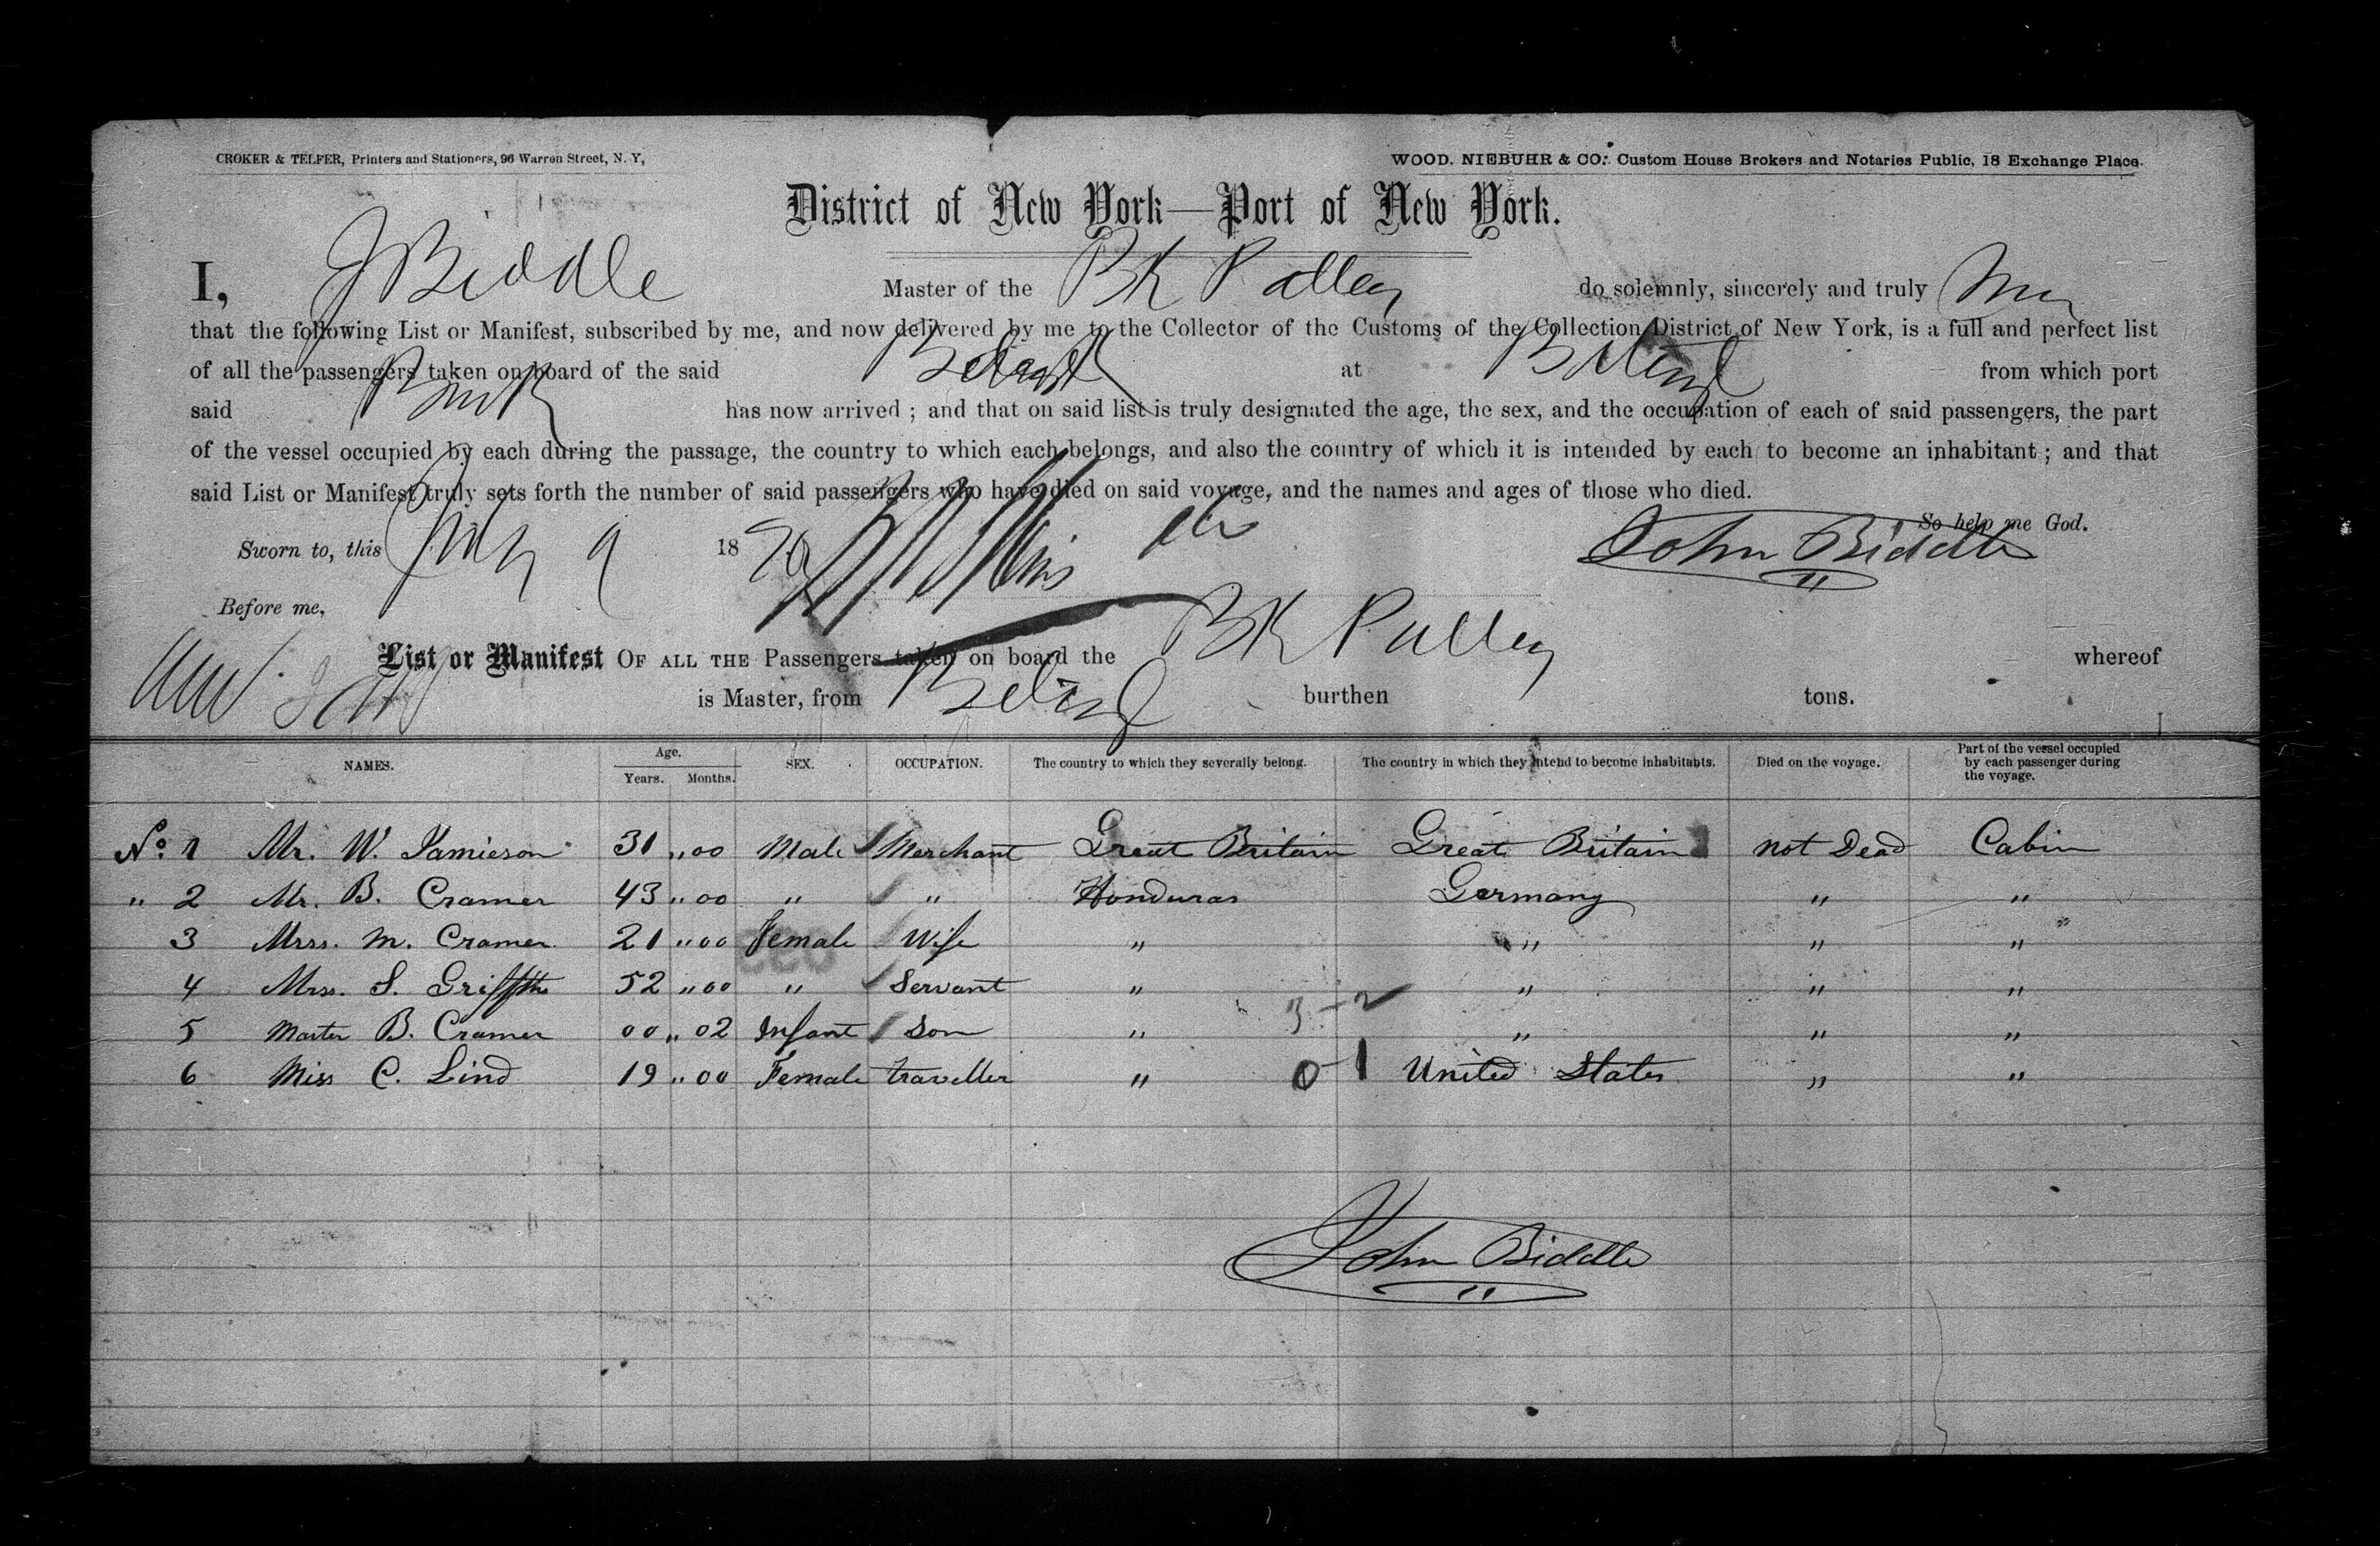 CROKER & TELFER, Printers and Stationers, 96 Warren Street, N. Y,
WOOD. NIEBUHR & CO: Custom House Brokers and Notaries Public, 18 Exchange Place.
District of New York—Port of New York.
I, J Biddle Master of the BK Palley do solemnly, sincerely and truly
that the following List or Manifest, subscribed by me, and now delivered by me to the Collector of the Customs of the Collection District of New York, is a full and perfect list
of all the passengers taken on board of the said at from which port
said Bark has now arrived ; and that on said list is truly designated the age, the sex, and the occupation of each of said passengers, the part
of the vessel occupied by each during the passage, the country to which each belongs, and also the country of which it is intended by each to become an inhabitant ; and that
said List or Manifest truly sets forth the number of said passengers who have died on said voyage, and the names and ages of those who died.
So help me God.
Sworn to, this 9 18 John Biddle
Before me,
List or Manifest OF ALL THE Passengers taken on board the BK Palley whereof
is Master, from burthen tons.
NAMES. Age. Years. Months. SEX. OCCUPATION. The country to which they severally belong. The country in which they intend to become inhabitants. Died on the voyage. Part of the vessel occupied by each passenger during the voyage.
No. 1 Mr. W. Jamieson 31 „ 00 Male Merchant Great Britain Great Britain not Dead Cabin
" 2 Mr. B. Cramer 43 „ 00 " " Honduras Germany " "
3 Mrs. M. Cramer 21 " 00 Female Wife " " " "
4 Mrs. S. Griffith 52 „ 00 " Servant " " " "
5 Master B. Cramer 00 „ 02 Infant Son " 3-2 " " "
6 Miss C. Lind 19 „ 00 Female traveller " 0-1 United States " "
John Biddle